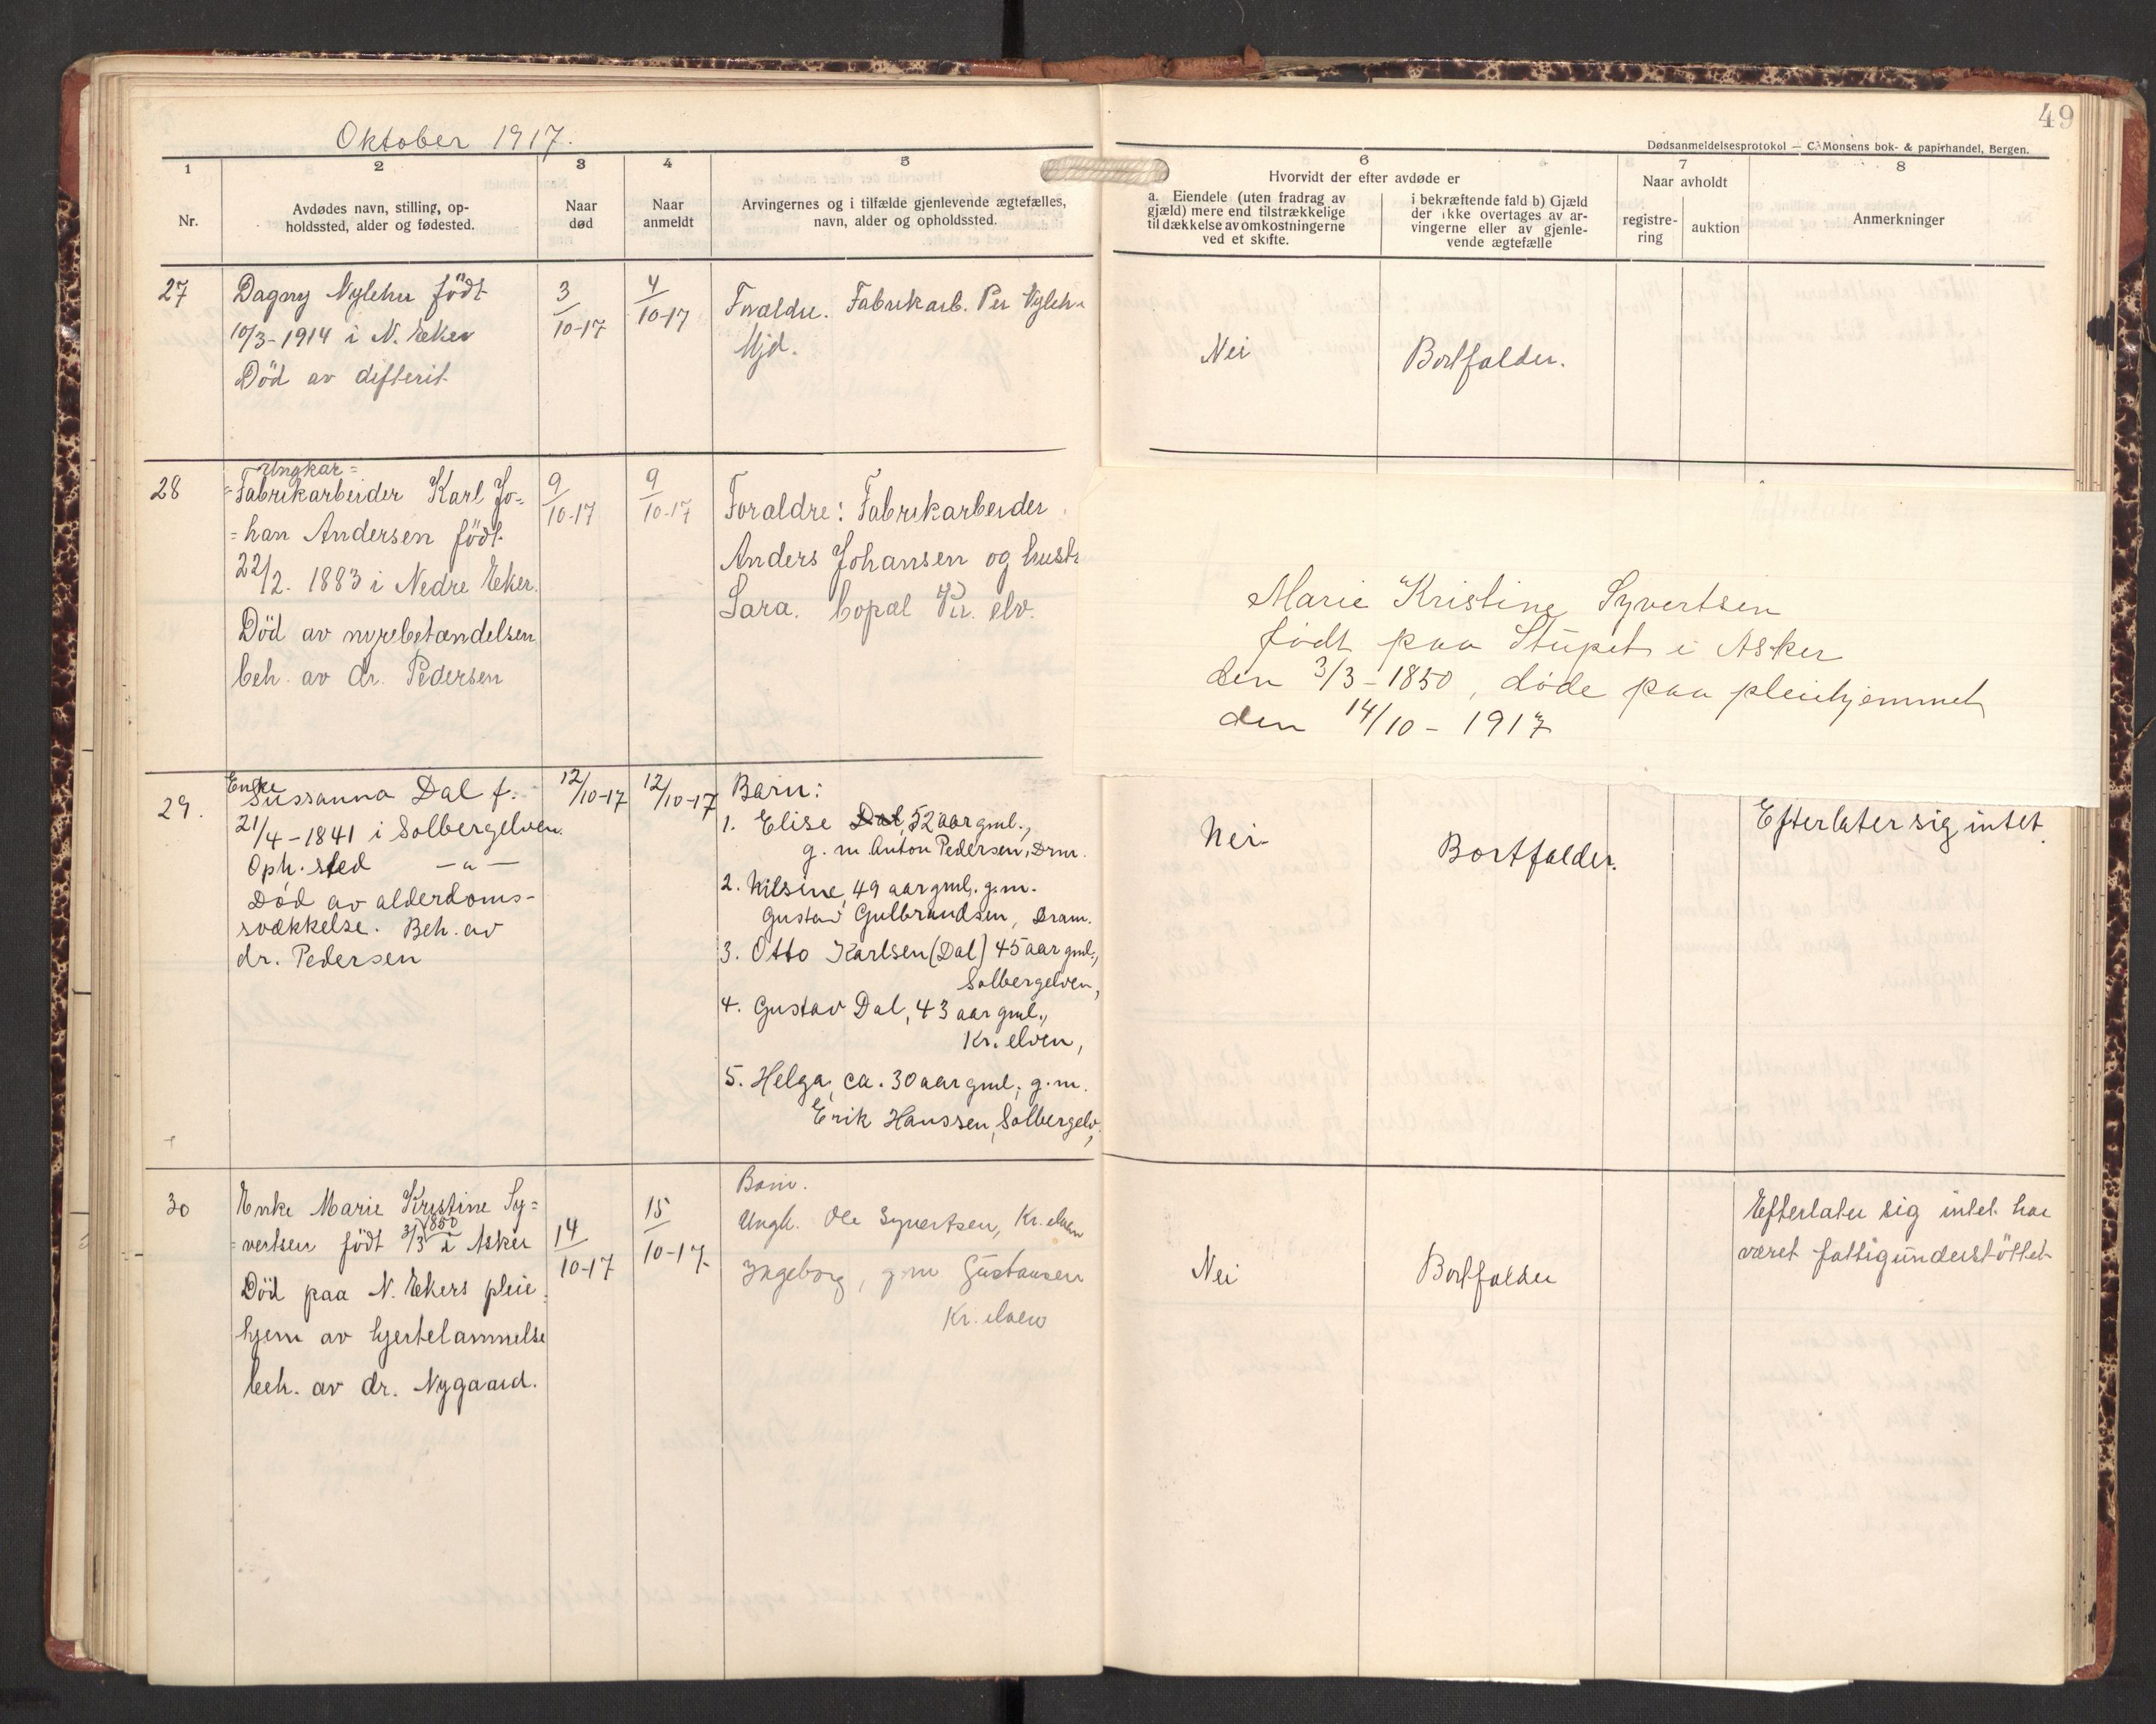 Oktober 1917.
49
Dødsanmeldelsesprotokol — C. Monsens bok- & papirhandel, Bergen.
1
Nr.
2
Avdødes navn, stilling, op-
holdssted, alder og fødested.
3
Naar
død
4
Naar
anmeldt
5
Arvingernes og i tilfælde gjenlevende ægtefælles,
navn, alder og opholdssted.
6
Hvorvidt der efter avdøde er
a. Eiendele (uten fradrag av
gjæld) mere end tilstrækkelige
til dækkelse av omkostningerne
ved et skifte.
i bekræftende fald b) Gjæld
der ikke overtages av ar-
vingerne eller av gjenle-
vende ægtefælle
7
Naar avholdt
registre-
ring
auktion
8
Anmerkninger
27
Dagny Nylehn født
10/3-1914 i N. Eker
Död av difterit
3/10-17
4/10-17
Foraldre. Fabrikarb. Per Nylehn
Mjd.
Nei
Bortfalder.
28
Ungkar=
=Fabrikarbeider Karl Jo-
=han Andersen födt
22/2. 1883 i Nedre Eker.
Död av nyrebetændelsen
beh. av dr. Pedersen
9/10-17
9/10-17
Foraldre: Fabrikarbeider
Anders Johansen og hustr
Sara. elv.
Marie Kristine Syvertsen
født paa Stupet i Asker
den 3/3-1850, døde paa pleiehjemmet
den 14/10-1917
29.
Enke
Sussanna Dal f.
21/4-1841 i Solbergelven.
Oph. sted —"—
Død av alderdoms-
svækkelse. Beh. av
dr. Pedersen
12/10-17
12/10-17
Barn:
1. Elise Dal, 52 aar gml.,
g. m. Anton Pedersen, Drm.
2. Nilsine, 49 aar gml. g.m.
Gustav Gulbrandsen, Dram.
3. Otto Karlsen (Dal) 45 aar gml.,
Solbergelven,
4. Gustav Dal, 43 aar gml.,
Kr. elven,
5. Helga, ca. 30 aar gml., g. m.
Erik Hanssen, Solbergelv,
Nei
Bortfalder.
Efterlater sig intet
30
Enke Marie Kristine Sy=
1850
=vertsen födt 3/3 i Asker
Död paa N. Ekers pleie
hjem av hjertelammelse
beh. av dr. Nygaard.
14/10-17
15/10-17.
Barn.
Ungk. Ole Syvertsen, Kr. elven
Ingeborg, g. m Gustavsen
Kr. elven
Nei
Bortfalder
Efterlater sig intet har
været fattigunderstöttet